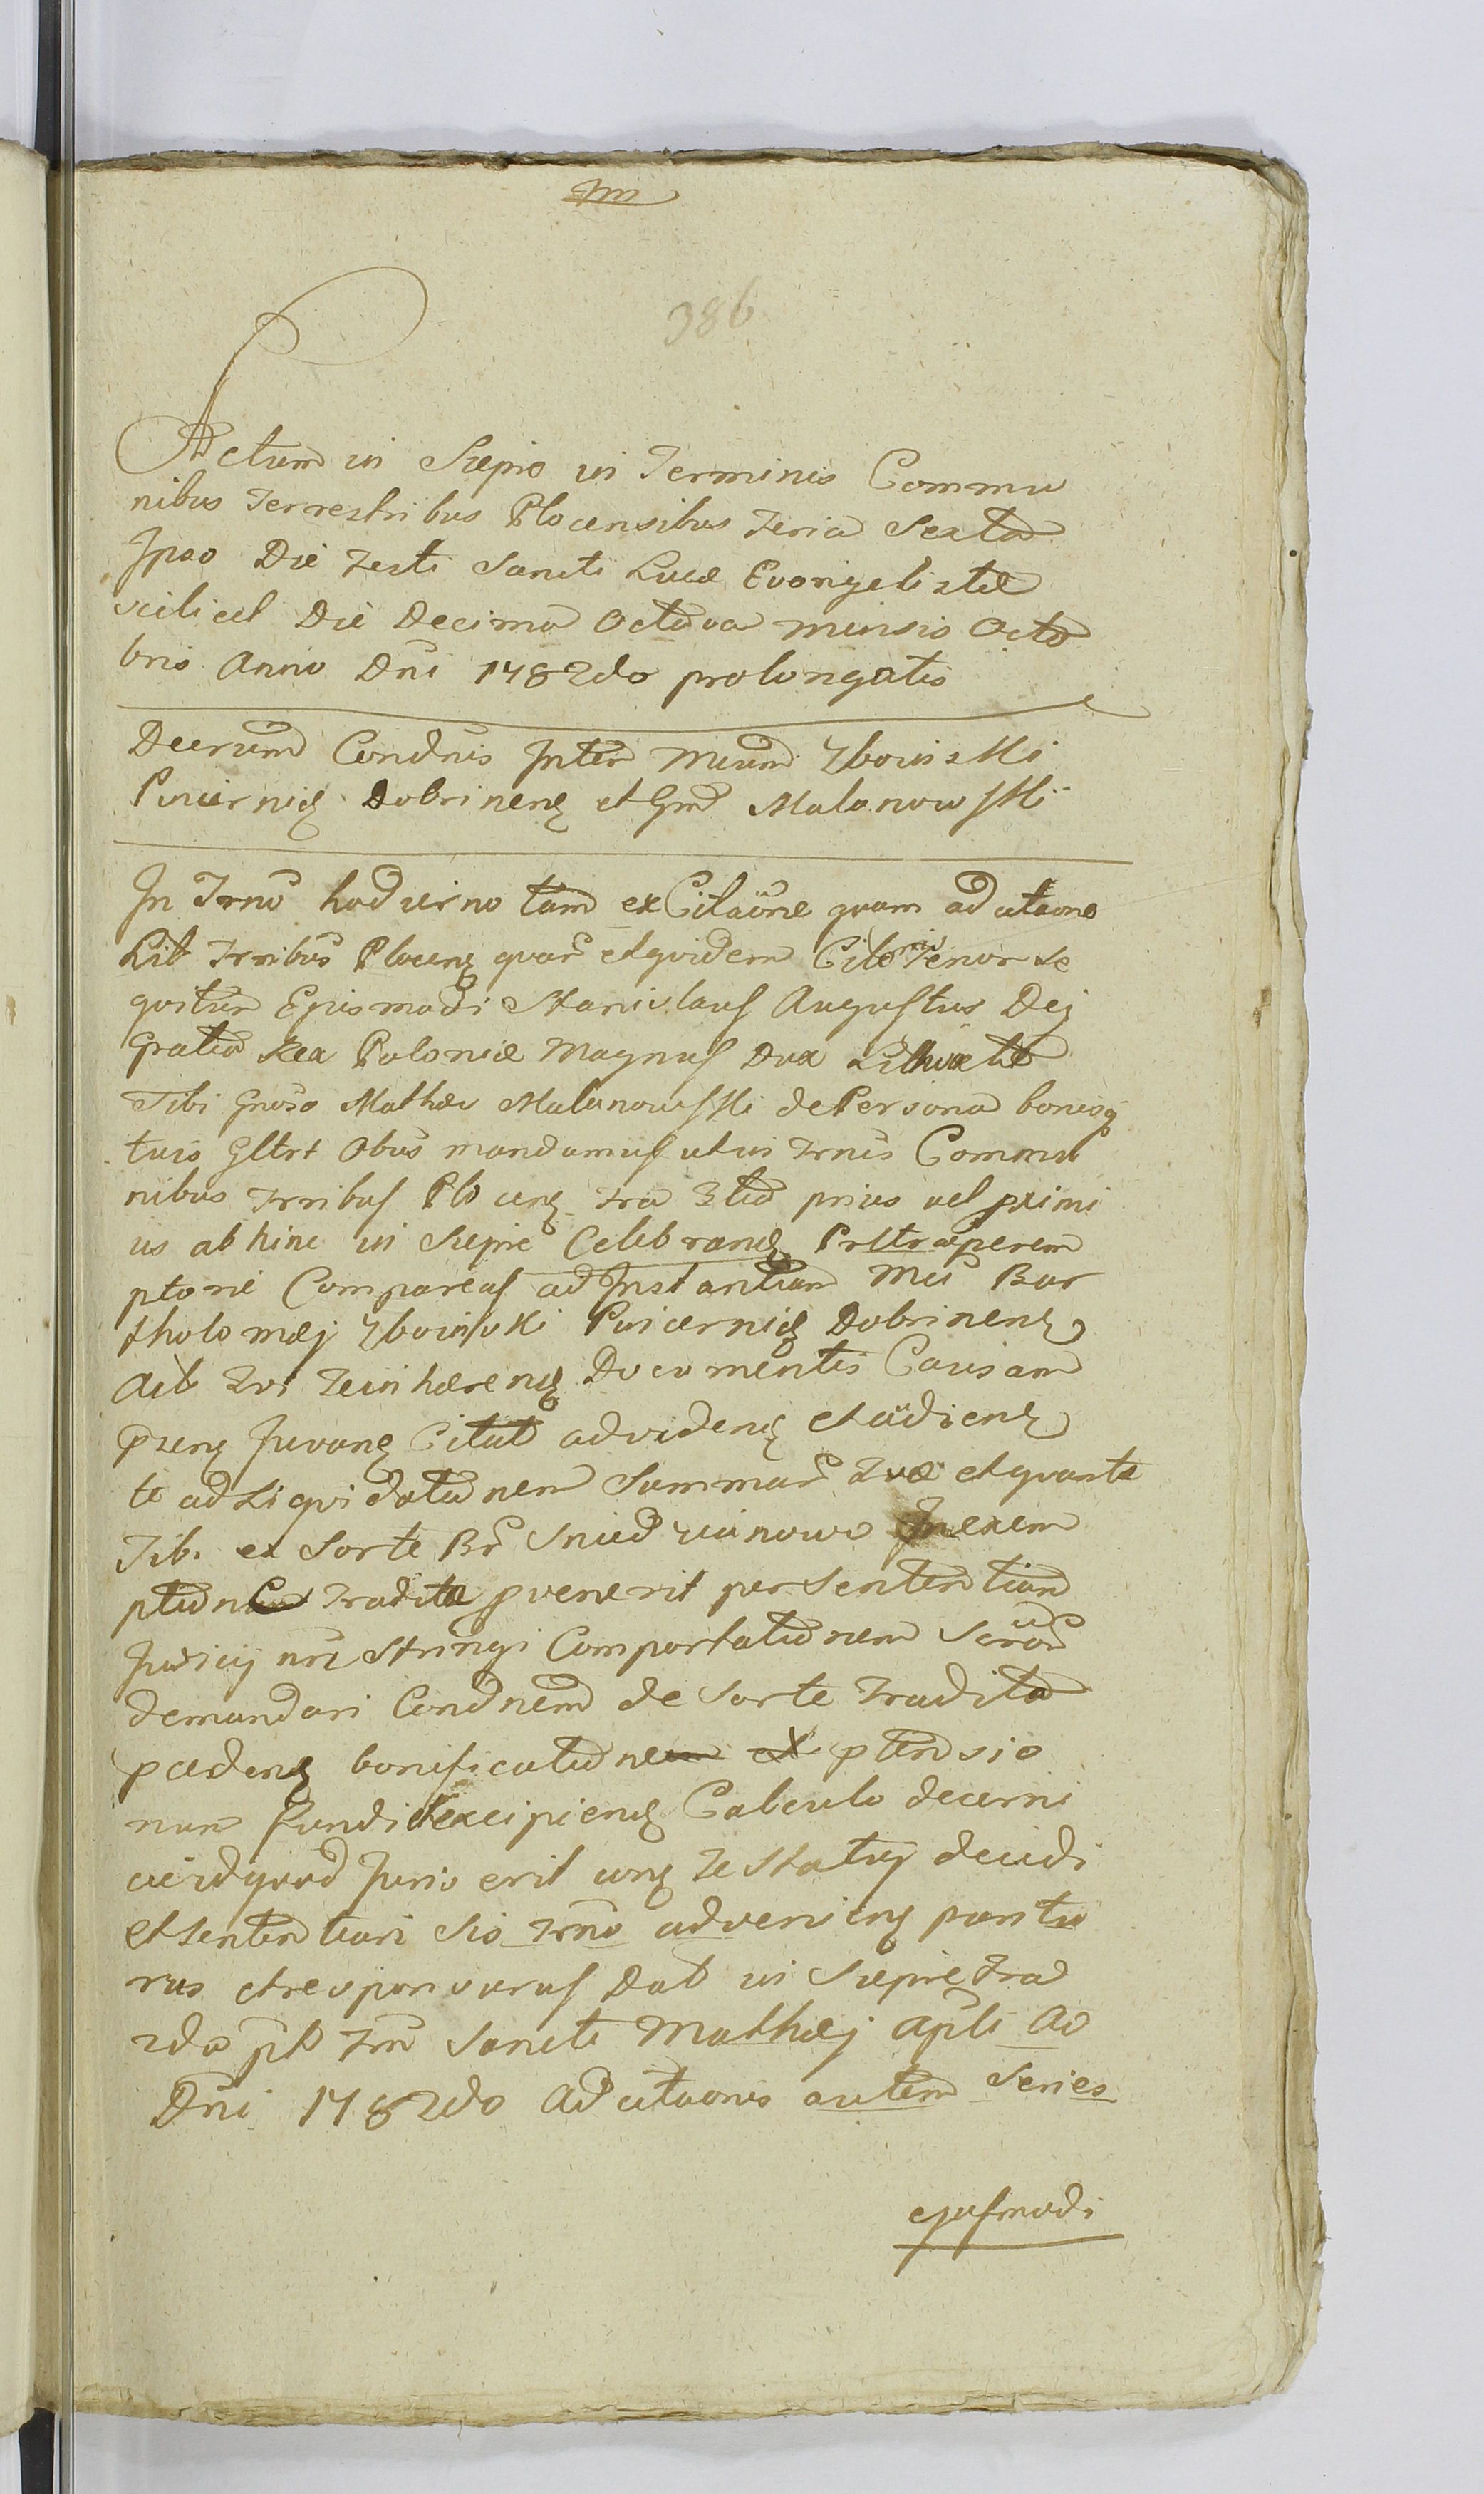 386
Actum in Siepro in Terminis Commu
nibus Terrestribus Plocensibus Feria Sexta
Ipso Die Festi Sancti Lucæ Evangelistæ
scilicet Die Decima Octava mensis Octo
bris Anno Dni 1782do prolongatis
Decrum Condnis Inter Mcum Zboinski
Pincernig Dobrineng et Gnd Malanowski
In Trno hodierno tam ex Citaōne quam adcitaone
Lit Trribus Ploceng quar et quidem Citonis Tenor se
quitur Ejusmodi Stanislaus Augustus Dej
Gratia Rex Poloniæ Magnus Dux Lithuæ etc
Tibi Gnoso Mathæo Malanowski de Persona bonisq
tuis Gltrt Obus mandamus ut in Trnis Commu
nibus Trribus Ploceng Fra 3tia prius vel primi
us abhinc in Siepie Celebrand Prstræ perem
ptorie Compareas ad Instantiam Mci Bar
tholomæj Zboinski Pincernig Dobrineng
Act Tvi Te inhæreng Documentis Causam
pseng Juvang Citat ad videng et audieng
te ad Liqvidationem Summar Qvæ et quanta
Tibi ex Sorte Br Sniedzianowo Inexem
ptionem Tradita pvenerit per Sententiam
Judicij nri Stringi Comportationem Scrorū
demandari Condnem de Sorte Tradita
pcedeng bonificationem ex ptensio
num Fundi excipieng Calculo decerni
et id quod Juris erit cong Te Statuj decidi
et sententiari Sis Trno advenieng paritu
rus et responsurus Dat in Siepie Fra
2da pt Fm Sancti Mathæj Apli Ao
Dni 1782do Adcitaonis autem Series
ejusmodi